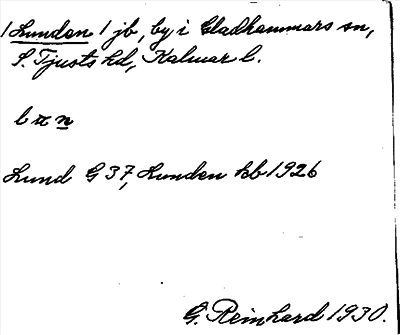 /Lunden/ jb, by i Gladhammars sn,
S. Tjusts hd, Kalmar l.
Lund G 37, Lunden kb 1926
G. Reinhard 1930.